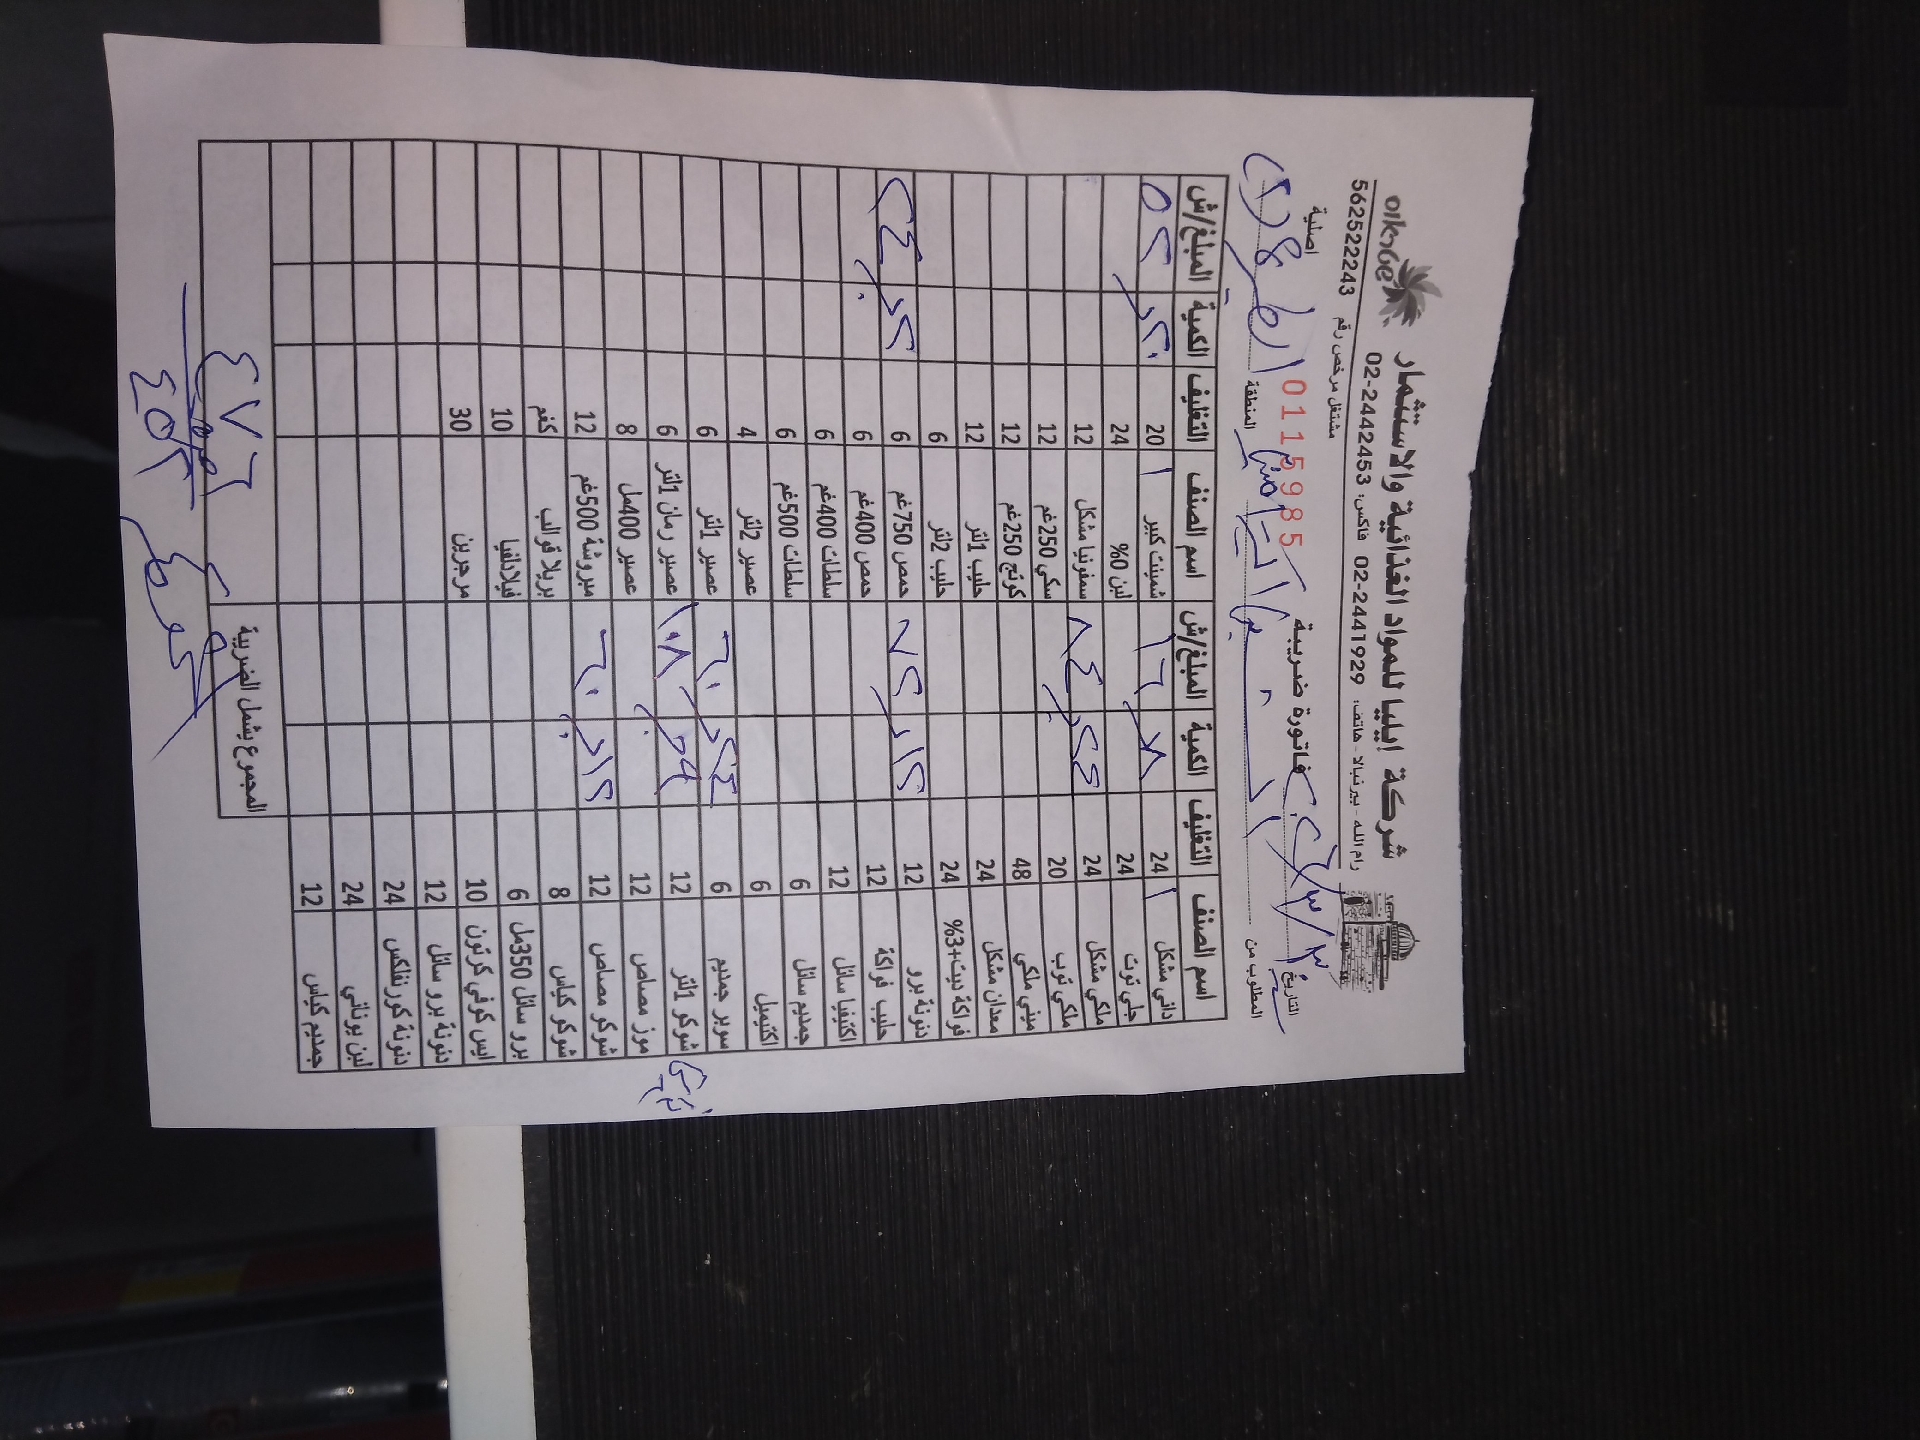 شركة ايليا للمواد الغذائية والاستثمار
رام الله - بير نبالا - هاتف: 02-2441929 فاكس: 02-2442453
مشتغل مرخص رقم 562522243
التاريخ
فاتورة ضريبية
0115985
اصلية
المطلوب من
المنطقة
اسم الصنف التغليف الكمية المبلغ/ش اسم الصنف التغليف الكمية المبلغ/ش
داني مشكل 24 ٨ ١٦ شمينت كبير 20 ٢٠ ٥٢
جلي توت 24 لبن 0% 24
ملكي مشكل 24 ٨٤ سمفونيا مشكل 12
ملكي توب 20 سكي 250غم 12
ميني ملكي 48 كوتج 250غم 12
معدان مشكل 24 حليب 1لتر 12
فواكة ديت+3% 24 حليب 2لتر 6
دنونة برو 12 ١٢ ٧٢ حمص 750غم 6
حليب فواكة 12 حمص 400غم 6
اكتيفيا سائل 12 سلطات 400غم 6
جمديم سائل 6 سلطات 500غم 6
اكتيميل 6 عصير 2لتر 4
سوبر جمديم 6 ٢٤ ٦٠ عصير 1لتر 6
شوكو 1لتر 12 ١٠٨ عصير رمان 1لتر 6
موز مصاص 12 عصير 400مل 8
شوكو مصاص 12 ١٢ ٦٠ مبروشة 500غم 12
شوكو كياس 8 بريلا قوالب كغم
برو سائل 350مل 6 فيلادلفيا 10
ايس كوفي كرتون 10 مرجرين 30
دنونة برو سائل 12
دنونة كورنفلكس 24
لبن يوناني 24
جمديم كياس 12
المجموع يشمل الضريبة
٤٧٦